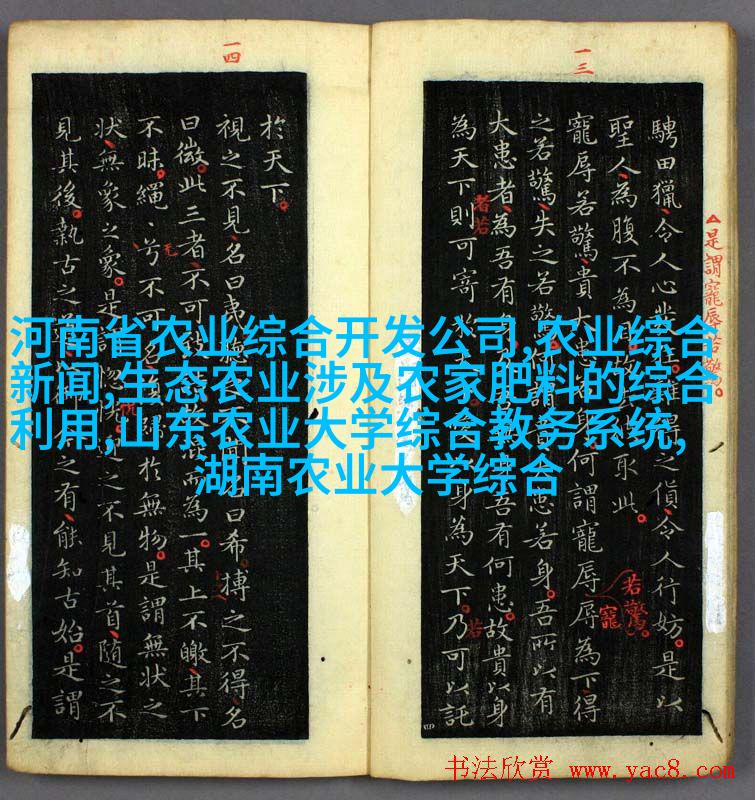 河南省农业综合开发公司,农业综合
新闻,生态农业涉及农家肥料的综合
利用,山东农业大学综合教务系统,
湖南农业大学综合
一三
△是謂寵辱若驚。
騁田獵令人心得之貨令人行妨是以
聖人為腹不為取此
寵辱若驚貴大患身何謂寵辱辱為下得
之若驚失之若驚謂貴大患若身吾所以有
大患者為吾有吾有何患故貴以身
為天下則可寄身為天下乃可以託
者若
若驚。
寵
若
一四
於天下
視之不見名曰夷聽聞名曰希搏之不得名
曰微此三者不可致而為一其上不皦其下
不昧繩〻兮不可於無物是謂無狀之
狀無象之象是謂惚之不見其首隨之不
見其後執古之之有能知古始是謂
书法欣赏 www.yac8.com